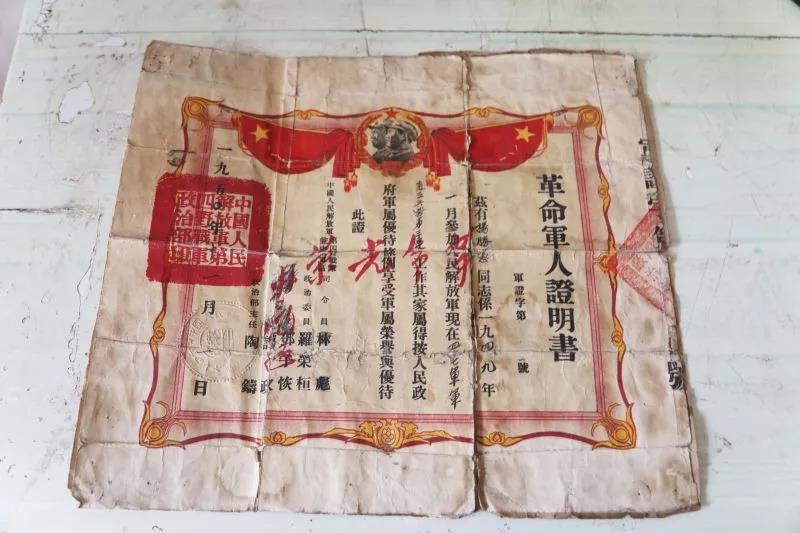 革命軍人證明書
軍證字第 號
茲有 同志係一九四九年
一月參加人民解放軍現在四七軍軍
工作其家屬得按人民政
府軍屬優待條例享受軍屬榮譽與優待
此證
中國人民解放軍第四野戰軍
司令員 林彪
政治委員 羅榮桓
鄧子恢
政治部主任 陶鑄
一九五 年 一月 日
中國人民
解放軍第
四野戰軍
政治部印
號